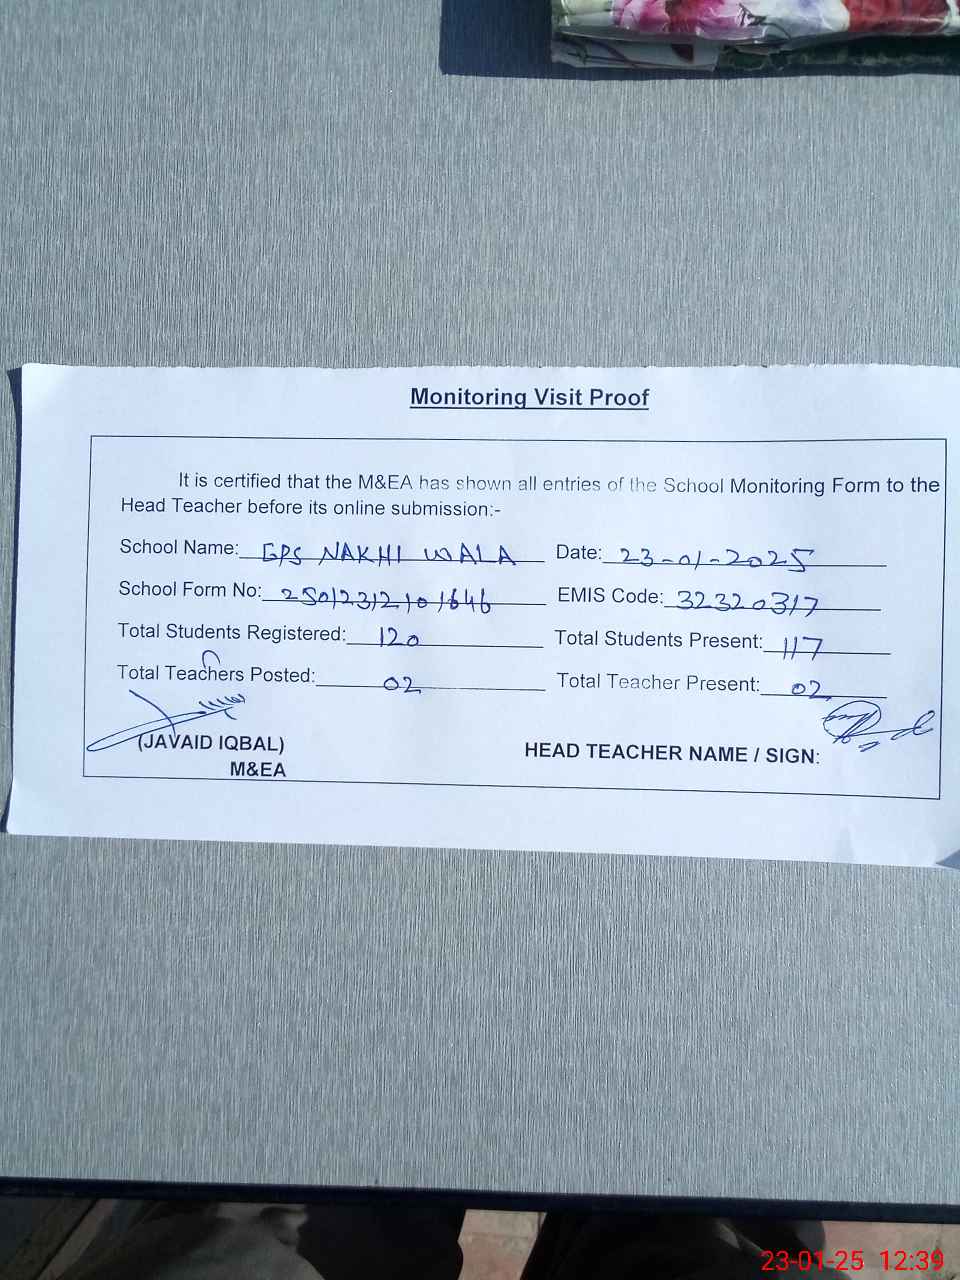 Monitoring Visit Proof
It is certified that the M&EA has shown all entries of the School Monitoring Form to the
Head Teacher before its online submission:-
School Name: GPS NAKHI WALA Date: 23-01-2025
School Form No: 25012312101646 EMIS Code: 32320317
Total Students Registered: 120 Total Students Present: 117
Total Teachers Posted: 02 Total Teacher Present: 02
(JAVAID IQBAL)
M&EA
HEAD TEACHER NAME / SIGN:
23-01-25 12:39